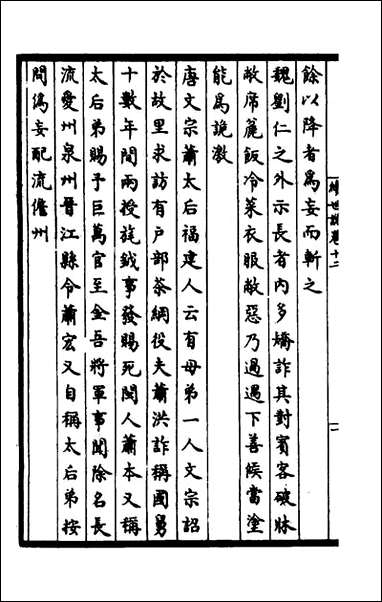 續世說卷十二
一
餘以降者為妄而斬之
魏劉仁之外示長者內多矯詐其對賓客破牀
敝席麄飯冷菜衣服敝惡乃過逼下善候當塗
能為詭激
唐文宗蕭太后福建人云有母弟一人文宗詔
於故里求訪有户部茶綱役夫蕭洪詐稱國舅
十數年間兩授旄鉞事發賜死閩人蕭本又稱
太后弟賜予巨萬官至金吾將軍事聞除名長
流愛州泉州晉江縣令蕭宏又自稱太后弟按
問偽妄配流儋州